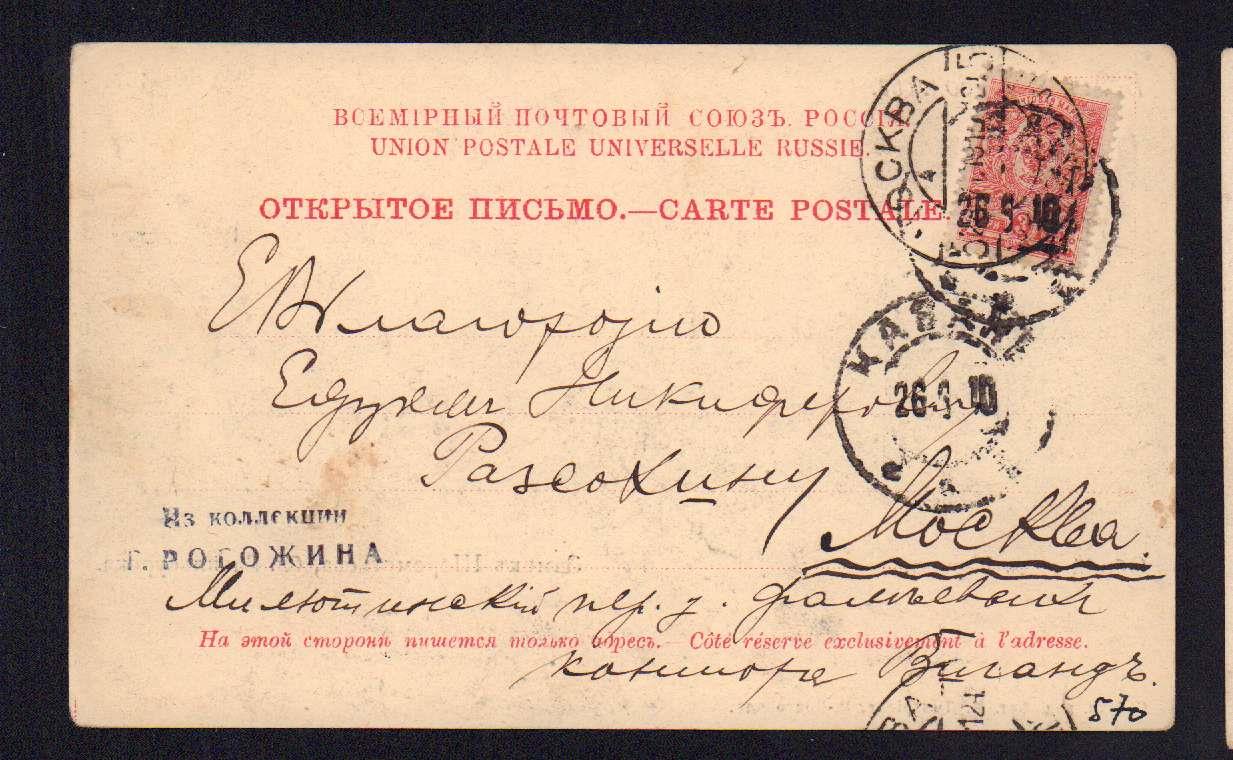 ВСЕМІРНЫЙ ПОЧТОВЫЙ СОЮЗЪ. РОССІЯ.
UNION POSTALE UNIVERSELLE RUSSIE
ОТКРЫТОЕ ПИСЬМО.—CARTE POSTALE.
МОСКВА
26 9 10
Его Благородію
КАЗАНЬ
26 9 10
Никифоровичу
Разсохину
Москва.
Из коллекции
Г. РОГОЖИНА
Милютинскій пер. д.
На этой сторонѣ пишется только адресъ.— Côté réservé exclusivement à l'adresse.
контора Вигандъ.
570